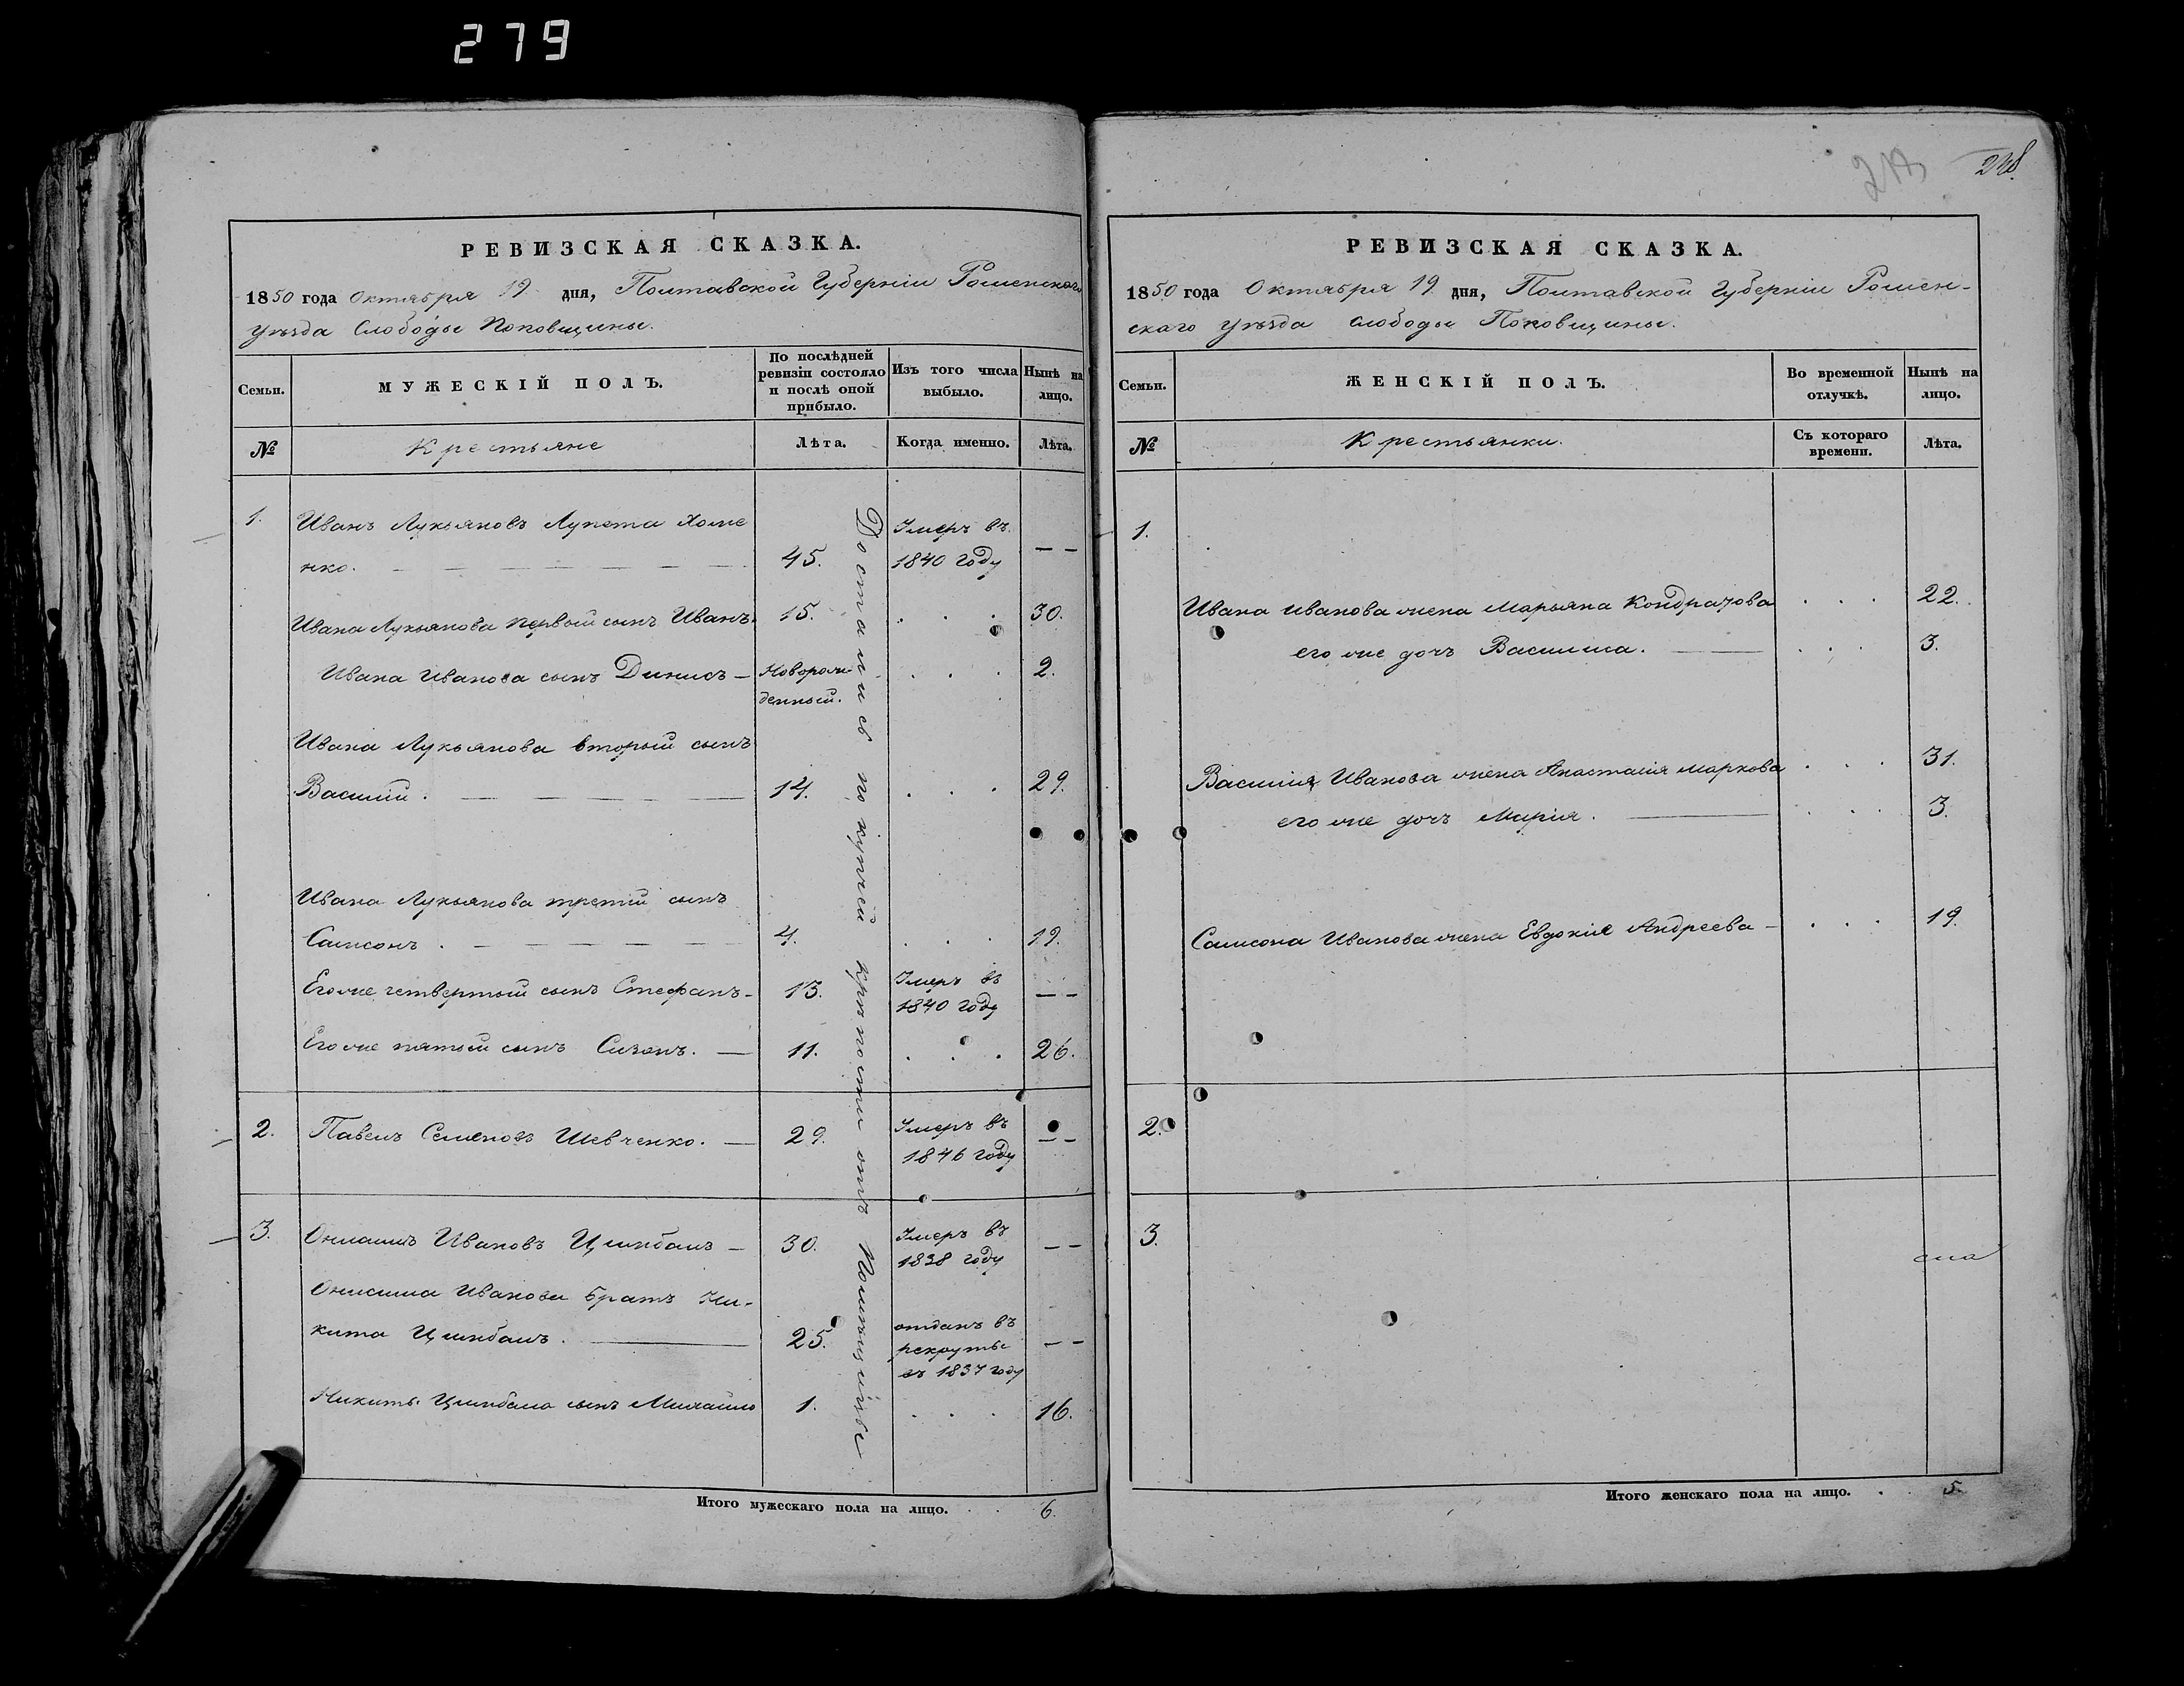 279
248.
РЕВИЗСКАЯ СКАЗКА.
1850 года Октября 19 дня, Полтавской Губерніи Роменского
уѣзда Слободы Поповщины.
Семьи.
МУЖЕСКІЙ ПОЛЪ.
По послѣдней ревизіи состояло и послѣ оной прибыло.
Изъ того числа выбыло.
Нынѣ на лицо.
№
Крестьяне
Лѣта.
Когда именно.
Лѣта.
1. Иванъ Лукьяновъ Лупета Хоме
нко. 45. Умеръ въ 1840 году
Ивана Лукьянова первый сынъ Иванъ. 15. 30.
Ивана Иванова сынъ Динисъ Новорож денный. 2.
Ивана Лукьянова вторый сынъ
Василій. 14. 29.
Ивана Лукьянова третій сынъ
Самсонъ. 4. 19.
Егоже четвертый сынъ Стефанъ 13. Умеръ въ 1840 году
Егоже пятый сынъ Сизонъ. 11. 26.
2. Павелъ Семеновъ Шевченко. 29. Умеръ въ 1846 году
3. Онисимъ Ивановъ Цимбалъ 30. Умеръ въ 1838 году
Онисима Иванова братъ Ни-
кита Цимбалъ. 25. отданъ въ рекруты въ 1837 году
Никиты Цимбала сынъ Михайло 1. 16.
Достались по купчей крѣпости отъ
Итого мужескаго пола на лицо. 6.
РЕВИЗСКАЯ СКАЗКА.
1850 года Октября 19 дня, Полтавской Губерніи Ромен-
ского уѣзда слободы Поповщины.
Семьи.
ЖЕНСКІЙ ПОЛЪ.
Во временной отлучкѣ.
Нынѣ на лицо.
№
Крестьянки.
Съ котораго времени.
Лѣта.
1.
Ивана Иванова жена Марьяна Кондратова 22.
его же дочь Василиса. 3.
Василія Иванова жена Анастасія Маркова 31.
его же дочь Марія. 3.
Самсона Иванова жена Евдокія Андреева 19.
2.
3.
Итого женскаго пола на лицо. 5.